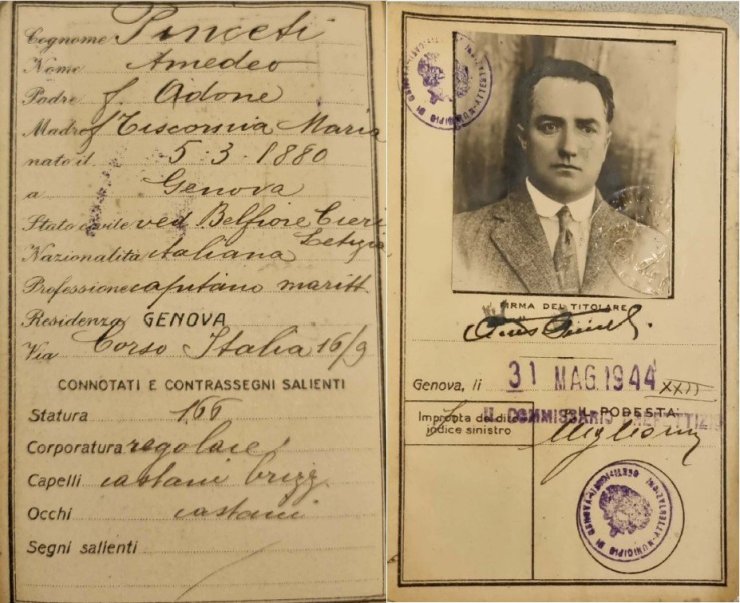 Cognome Pinceti
Nome Amedeo
Padre f. Adone
Madre f Tiscornia Maria
nato il 5.3.1880
a Genova
Stato civile ved Belfiore Cieri
Letizia
Nazionalità italiana
Professione capitano maritt.
Residenza GENOVA
Via Corso Italia 16/9
CONNOTATI E CONTRASSEGNI SALIENTI
Statura 166
Corporatura regolare
Capelli castani brizz.
Occhi castani
Segni salienti
FIRMA DEL TITOLARE
Genova, li 31 MAG. 1944 XXII
Impronta del dito
indice sinistro
IL PODESTÀ
IL COMMISSARIO PREFETTIZIO